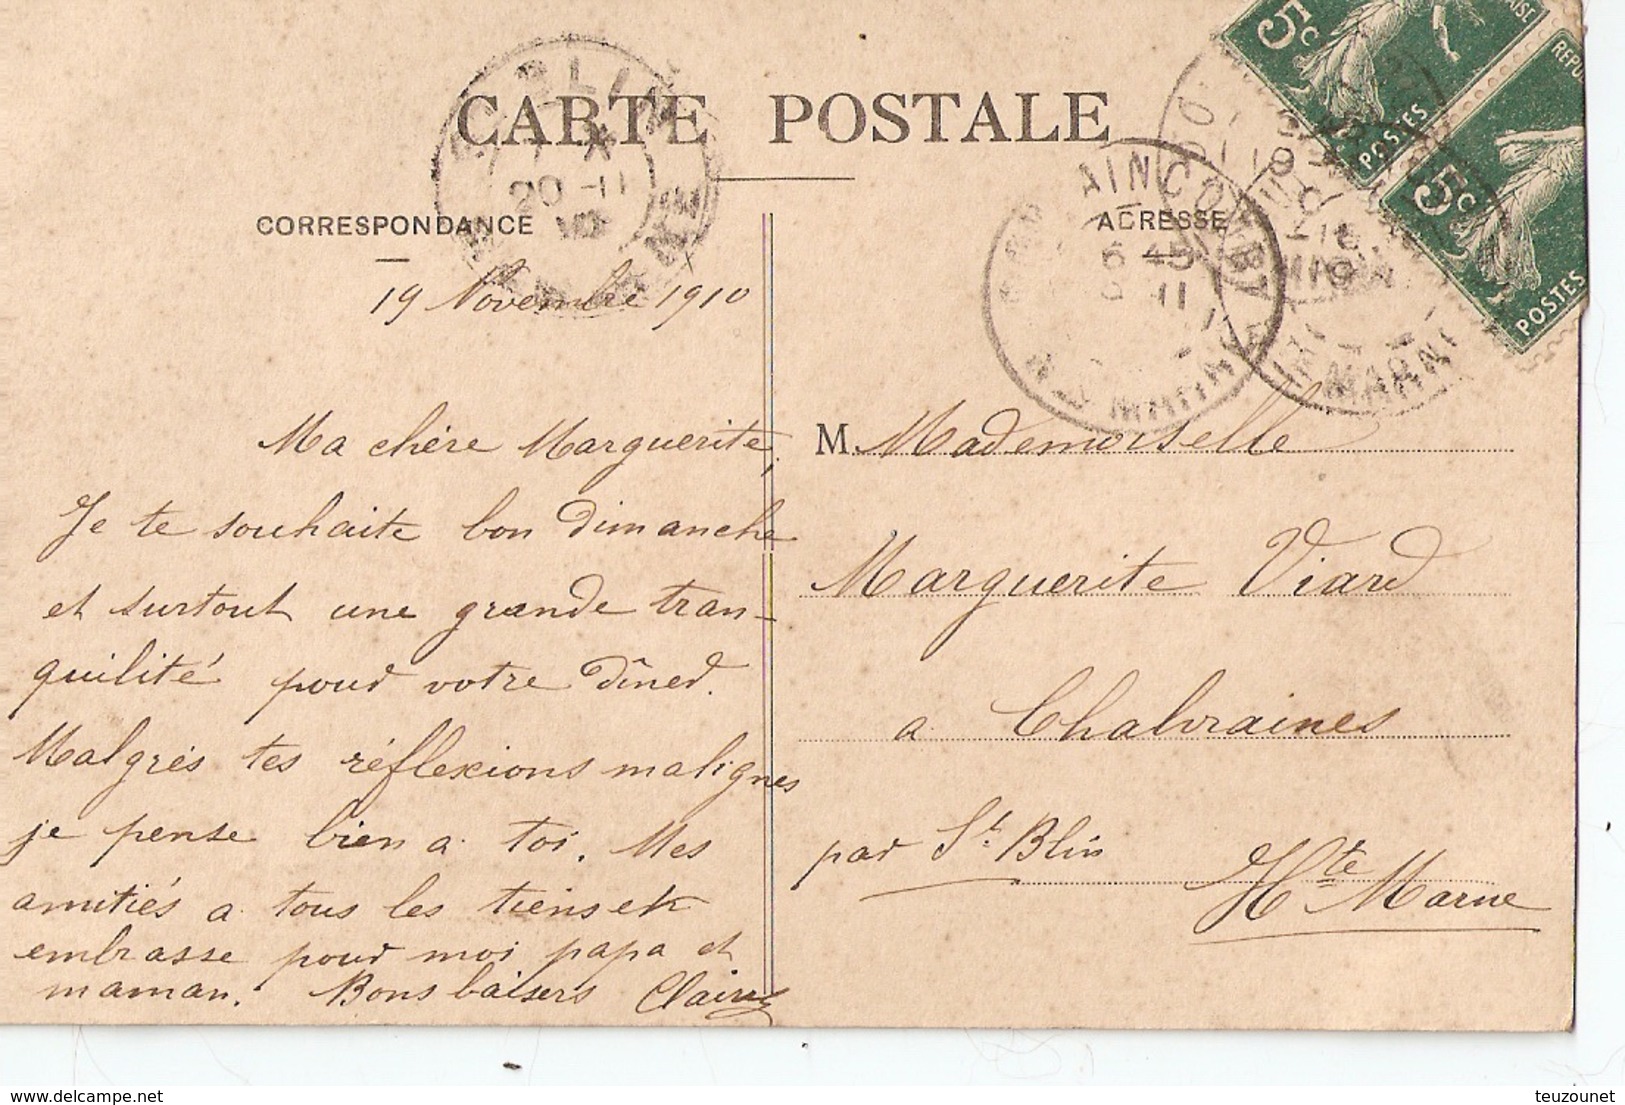 CARTE POSTALE
CORRESPONDANCE
ADRESSE
5c
POSTES
5c
POSTES
20 -11
19 Novembre 1910
Ma chère Marguerite,
Je te souhaite bon dimanche
et surtout une grande tran-
quilité pour votre dîner.
Malgrés tes réflexions malignes
je pense bien a toi. Mes
amitiés a tous les tiens et
embrasse pour moi papa et
maman. Bons baisers Claire
M. Mademoiselle
Marguerite Viard
a Chalvraines
par St. Blin
Hte Marne
delcampe.net
teuzounet